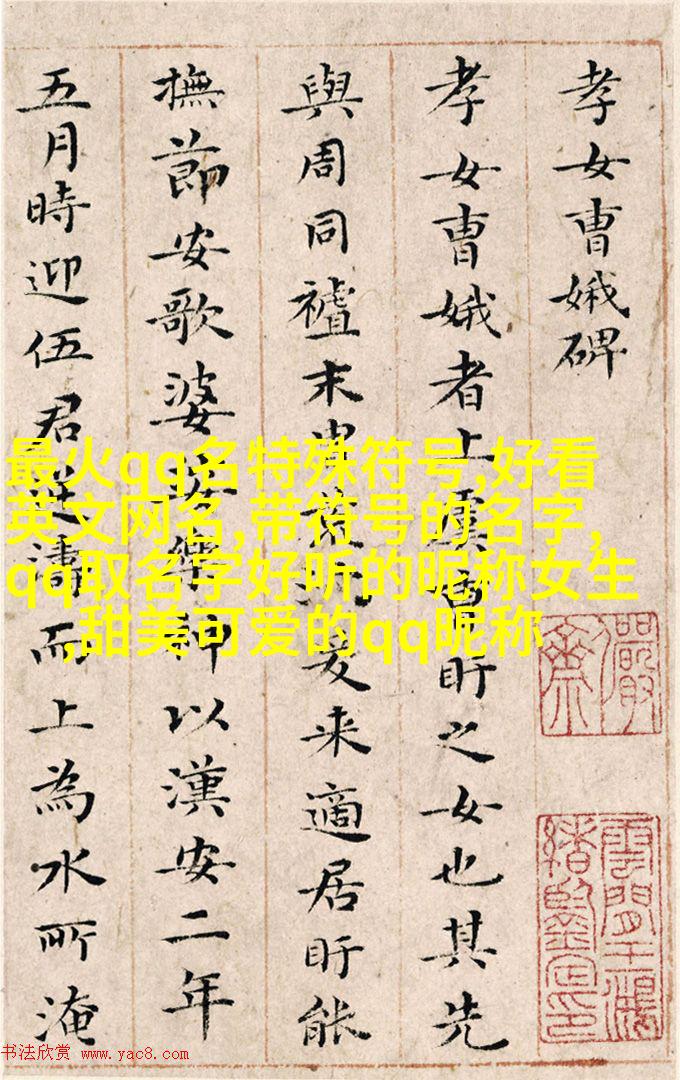 孝女曹娥碑
孝女曹娥者上虞曹盱之女也其先
與周同末胄荒爰来適居盱能
撫節安歌婆娑樂神以漢安二年
五月時迎伍君逆濤而上為水所淹
最火qq名特殊符号,好看
英文网名,带符号的名字,
qq取名字好听的昵称女生
,甜美可爱的qq昵称
儼齋
雲間王鴻緒鑒定印
书法欣赏 www.yac8.com